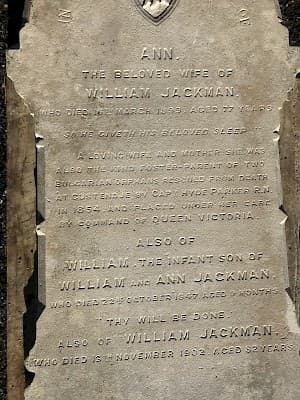 IN OF
ANN.
THE BELOVED WIFE OF
WILLIAM JACKMAN.
WHO DIED MARCH AGED 77 YEARS.
"SO HE GIVETH HIS BELOVED SLEEP."
A LOVING WIFE AND MOTHER SHE WAS
ALSO THE KIND FOSTER-PARENT OF TWO
BULGARIAN ORPHANS RESCUED FROM DEATH
AT CUSTENDJE BY CAPT HYDE PARKER R.N.
IN 1854, AND PLACED UNDER HER CARE
BY COMMAND OF QUEEN VICTORIA.
ALSO OF
WILLIAM, THE INFANT SON OF
WILLIAM AND ANN JACKMAN.
WHO DIED 22ND OCTOBER 1847 AGED MONTHS.
"THY WILL BE DONE."
ALSO OF WILLIAM JACKMAN.
WHO DIED 13TH NOVEMBER 1902, AGED 82 YEARS.